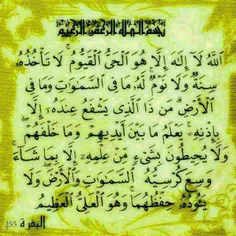 بِسْمِ اللَّهِ الرَّحْمَٰنِ الرَّحِيمِ
اللَّهُ لَآ إِلَٰهَ إِلَّا هُوَ الْحَىُّ الْقَيُّومُ لَا تَأْخُذُهُۥ
سِنَةٌ وَلَا نَوْمٌ لَّهُۥ مَا فِى السَّمَٰوَٰتِ وَمَا فِى
الْأَرْضِ مَن ذَا الَّذِى يَشْفَعُ عِندَهُۥٓ إِلَّا
بِإِذْنِهِۦ يَعْلَمُ مَا بَيْنَ أَيْدِيهِمْ وَمَا خَلْفَهُمْ
وَلَا يُحِيطُونَ بِشَىْءٍ مِّنْ عِلْمِهِۦٓ إِلَّا بِمَا شَآءَ
وَسِعَ كُرْسِيُّهُ السَّمَٰوَٰتِ وَالْأَرْضَ وَلَا
يَـُٔودُهُۥ حِفْظُهُمَا وَهُوَ الْعَلِىُّ الْعَظِيمُ
البقرة 255